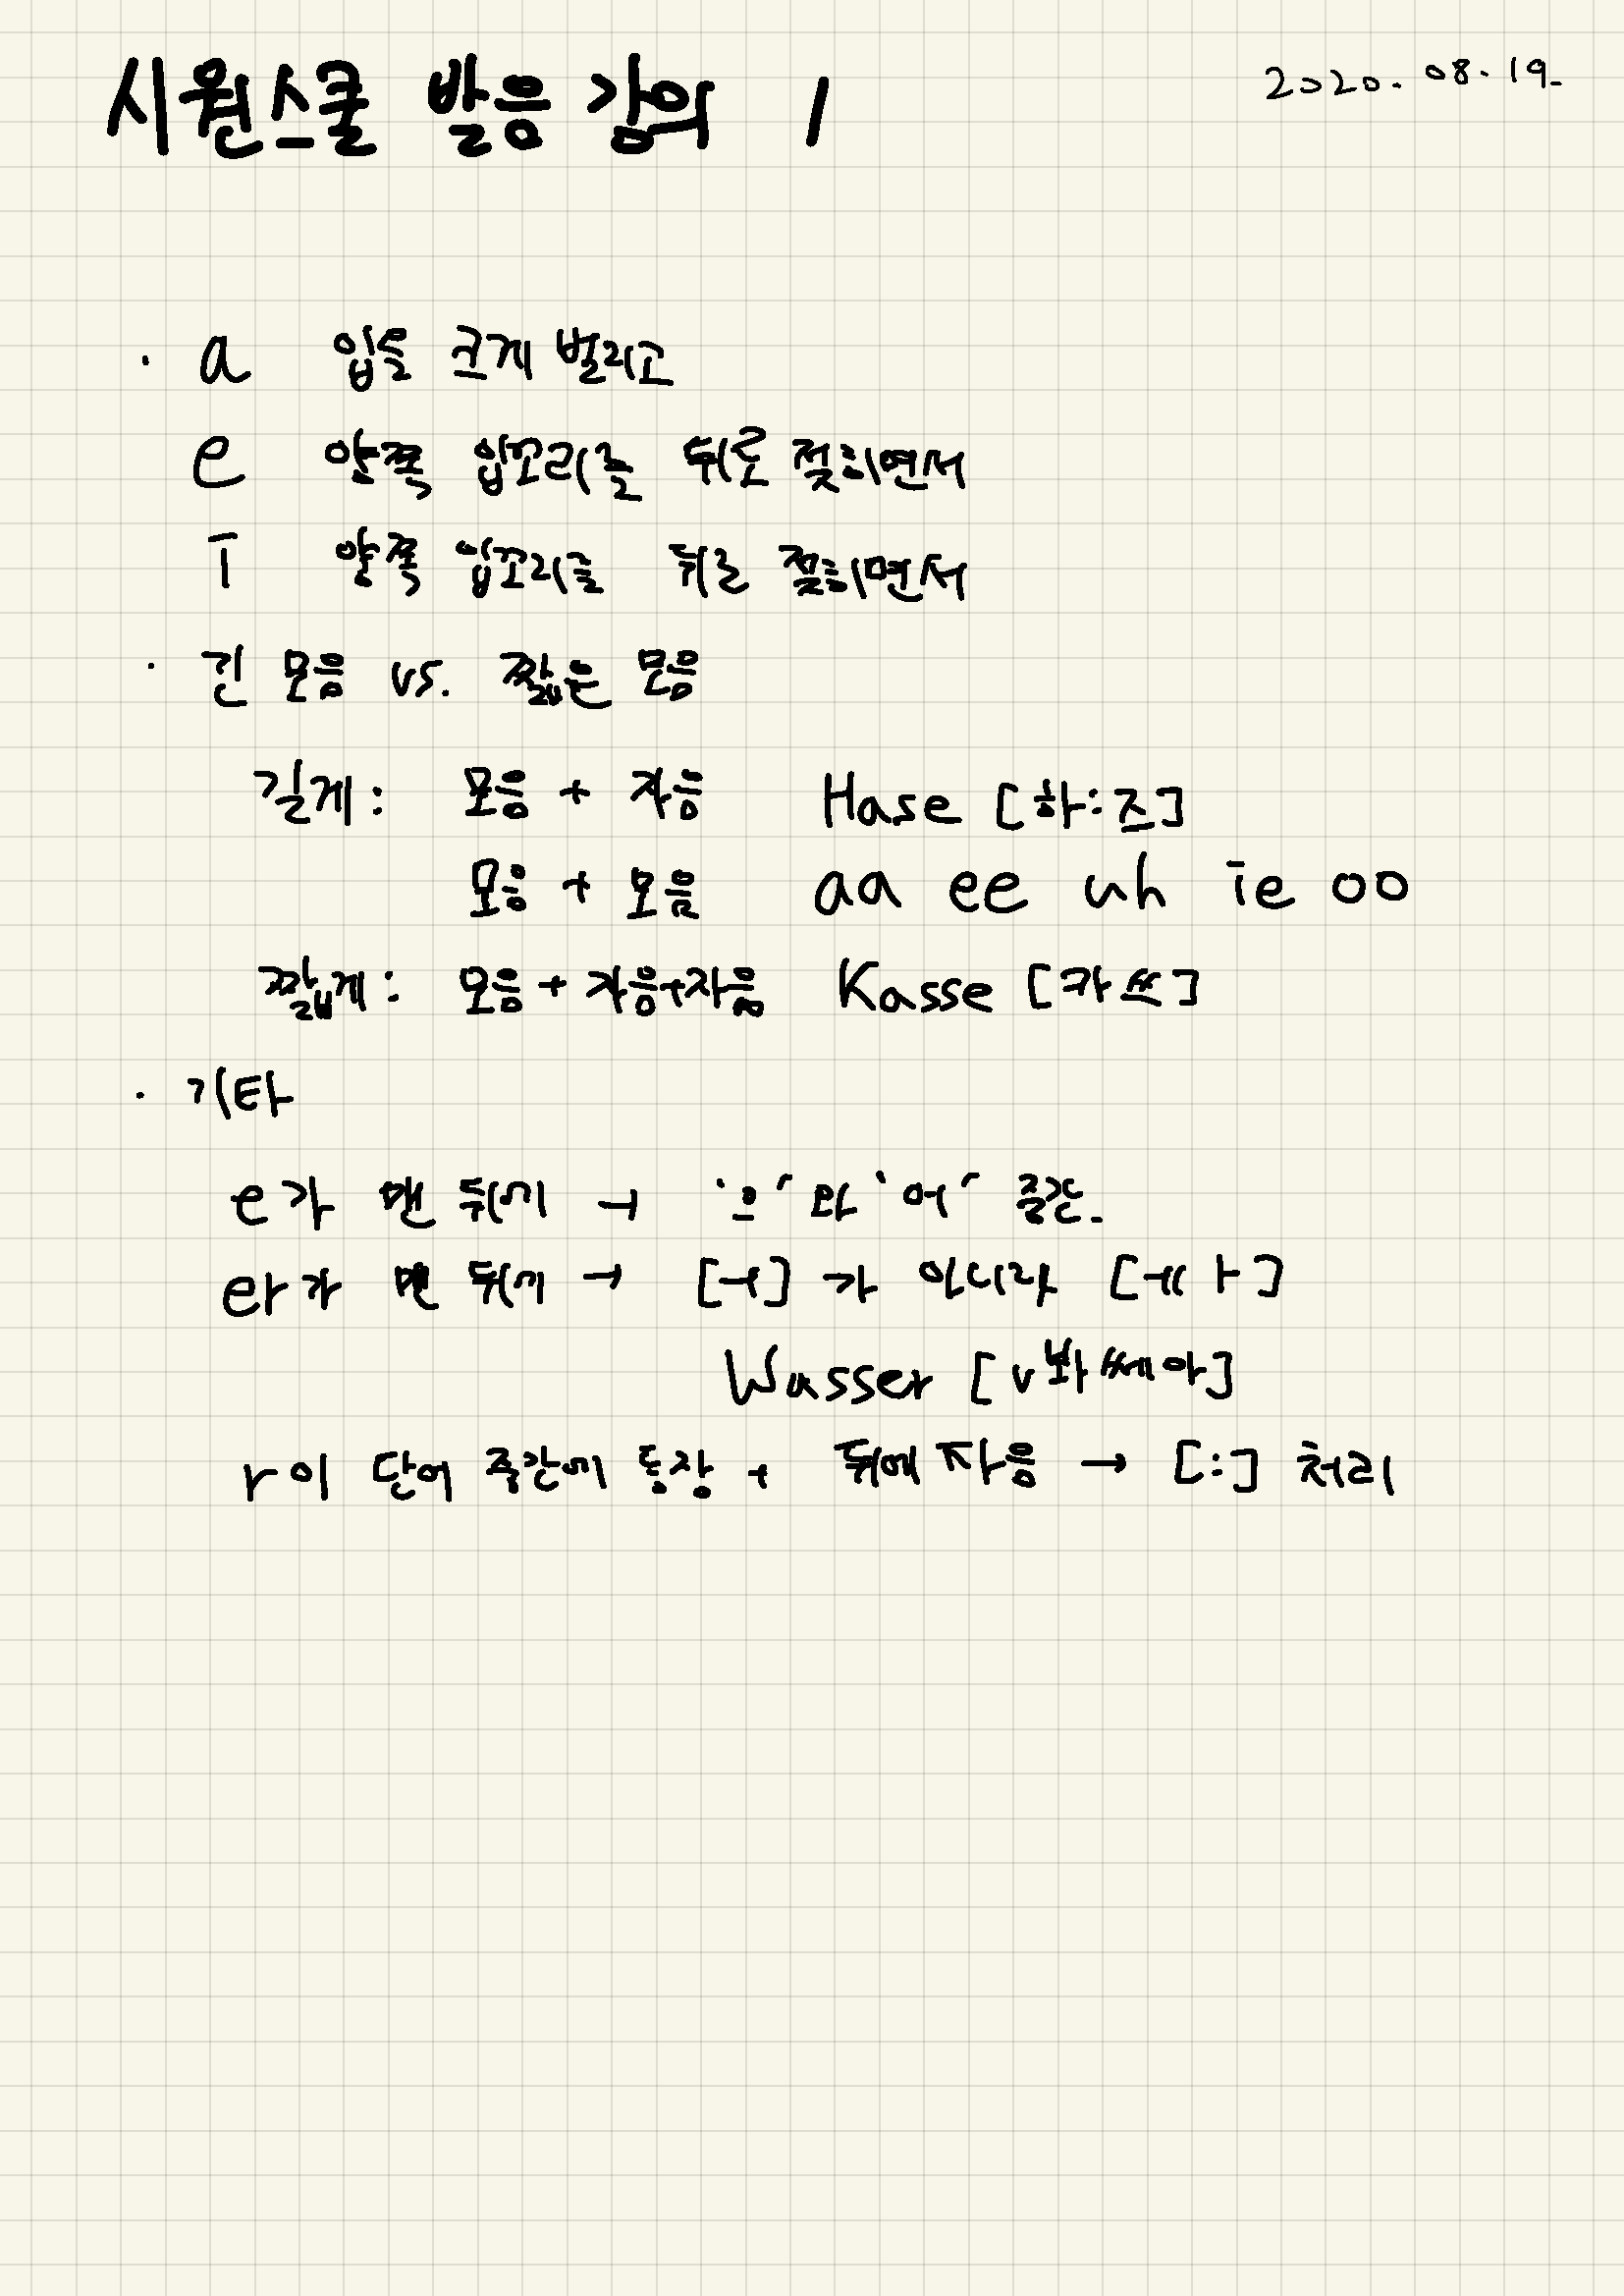 시원스쿨 발음 강의 1
2020. 08. 19.
· a 입을 크게 벌리고
e 양쪽 입꼬리를 뒤로 젖히면서
i 양쪽 입꼬리를 뒤로 젖히면서
· 긴 모음 vs. 짧은 모음
길게: 모음 + 자음 Hase [하:즈]
모음 + 모음 aa ee uh ie oo
짧게: 모음 + 자음+자음 Kasse [카쓰]
· 기타
e가 맨 뒤에 → '으'와 '어' 중간.
er가 맨 뒤에 → [ㅓ]가 아니라 [ㅔㅏ]
Wasser [v봐쎄아]
r이 단어 중간에 등장 + 뒤에 자음 → [:] 처리